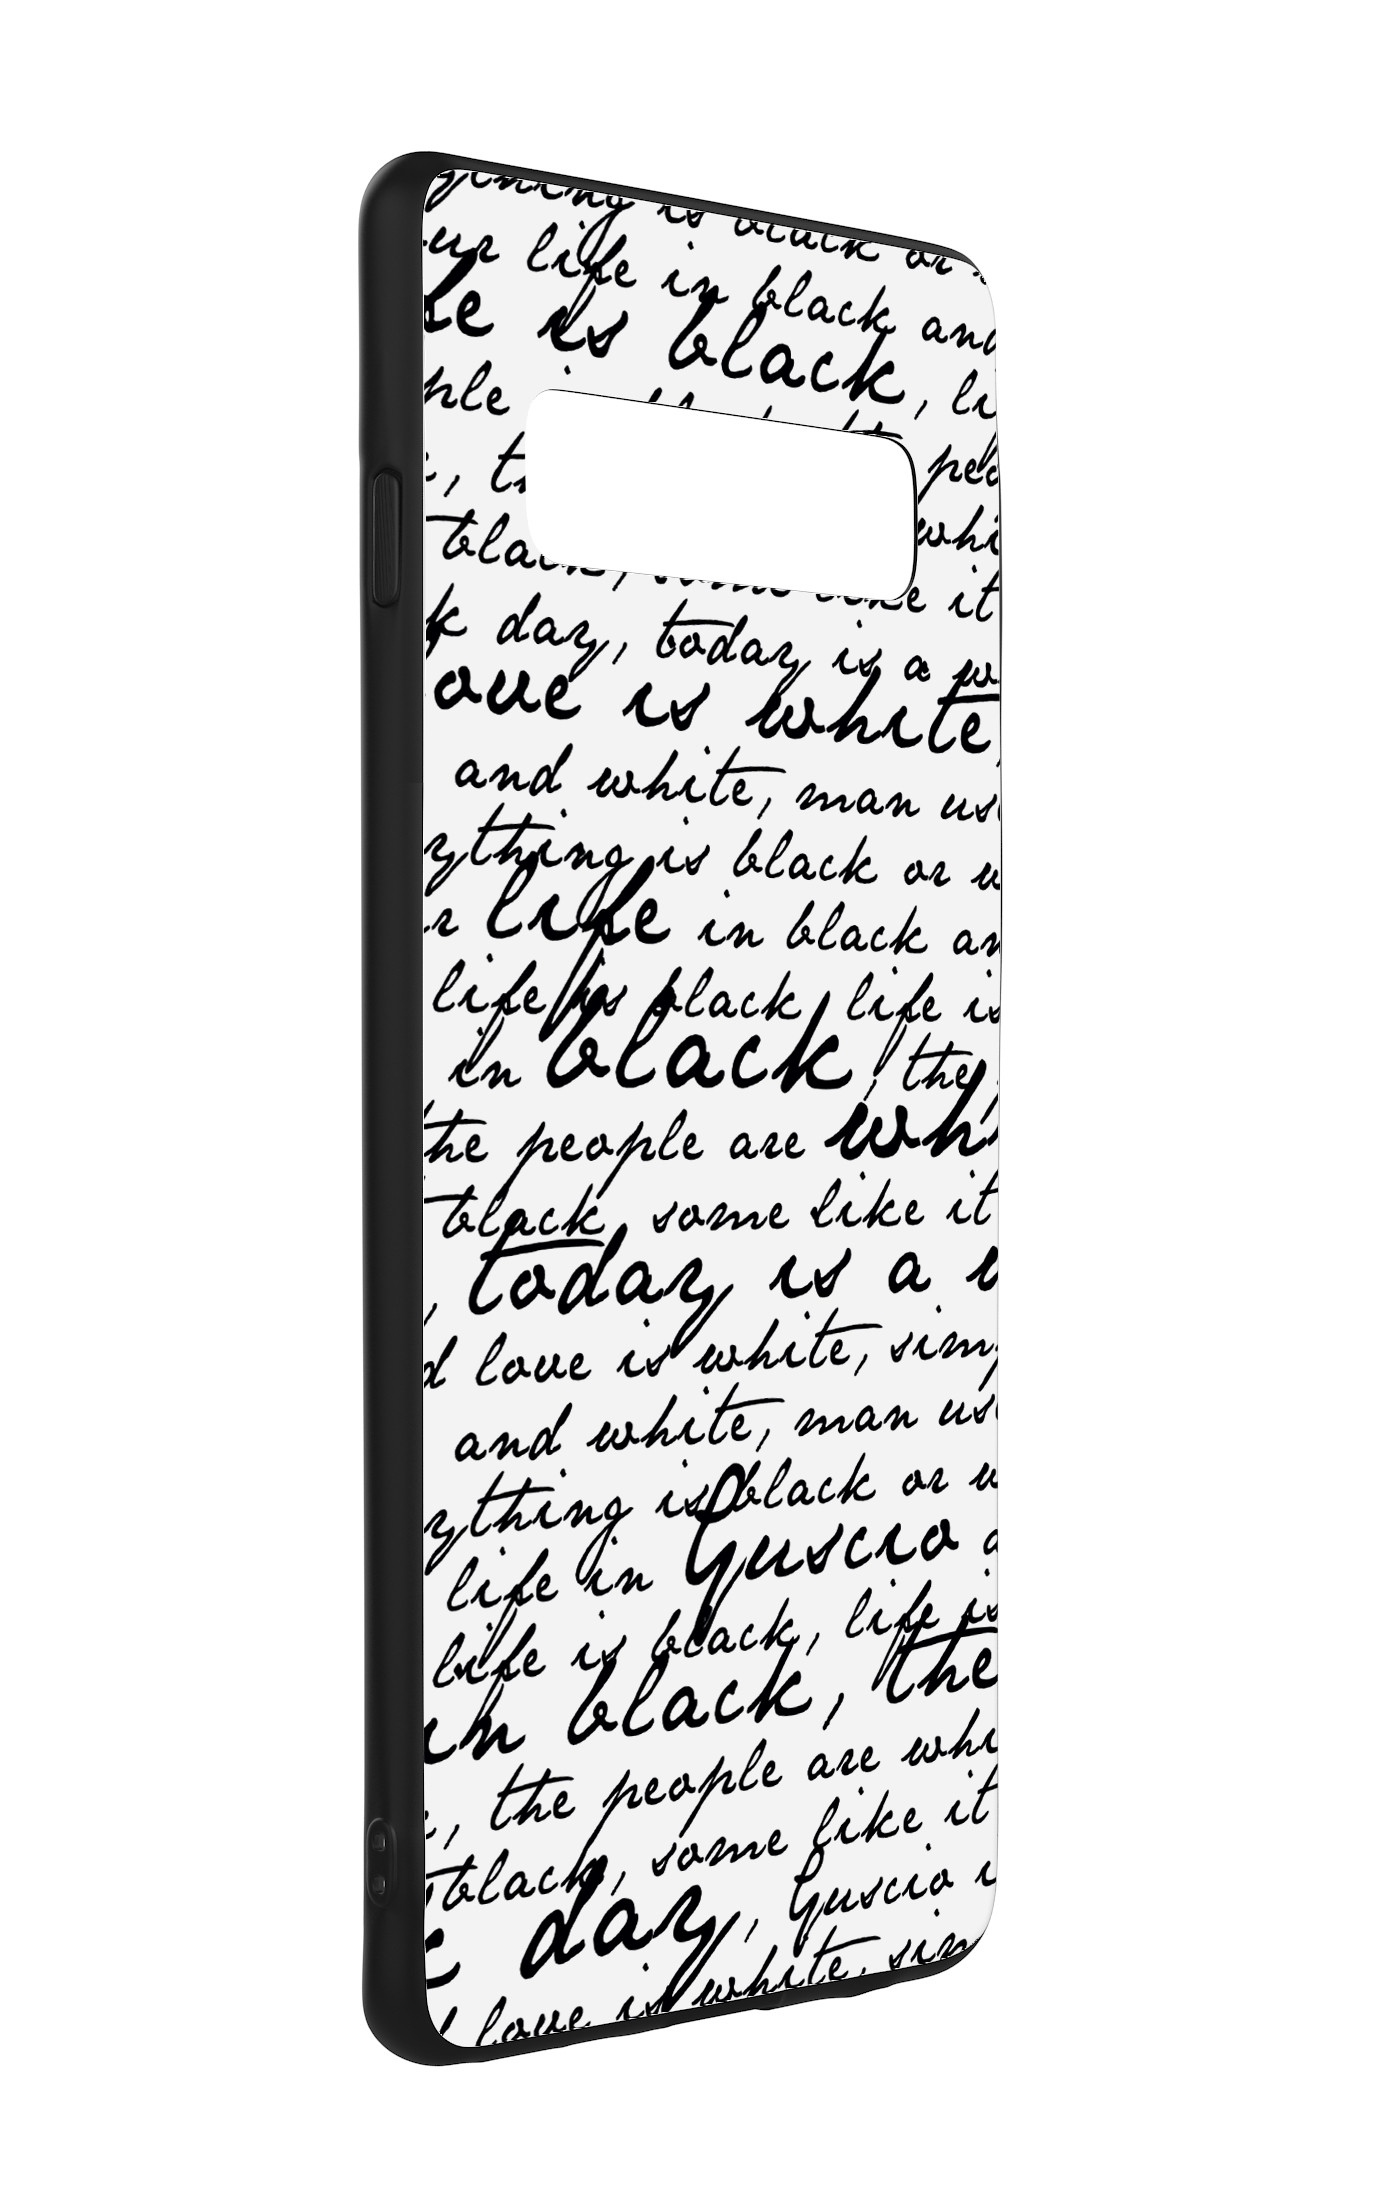 is black or
ur life in black and
le is black, li
ple
black, like it
k day, today is a w
ove is white,
and white, man us
ything is black or w
r life in black an
life is black, life is
in black, the
the people are whi
black, some like it
, today is a w
d love is white, sim
and white, man us
ything is black or w
life in Guscio a
life is black, life is
in black, the
, the people are whi
black, some like it
k day, Guscio i
love is white, sim